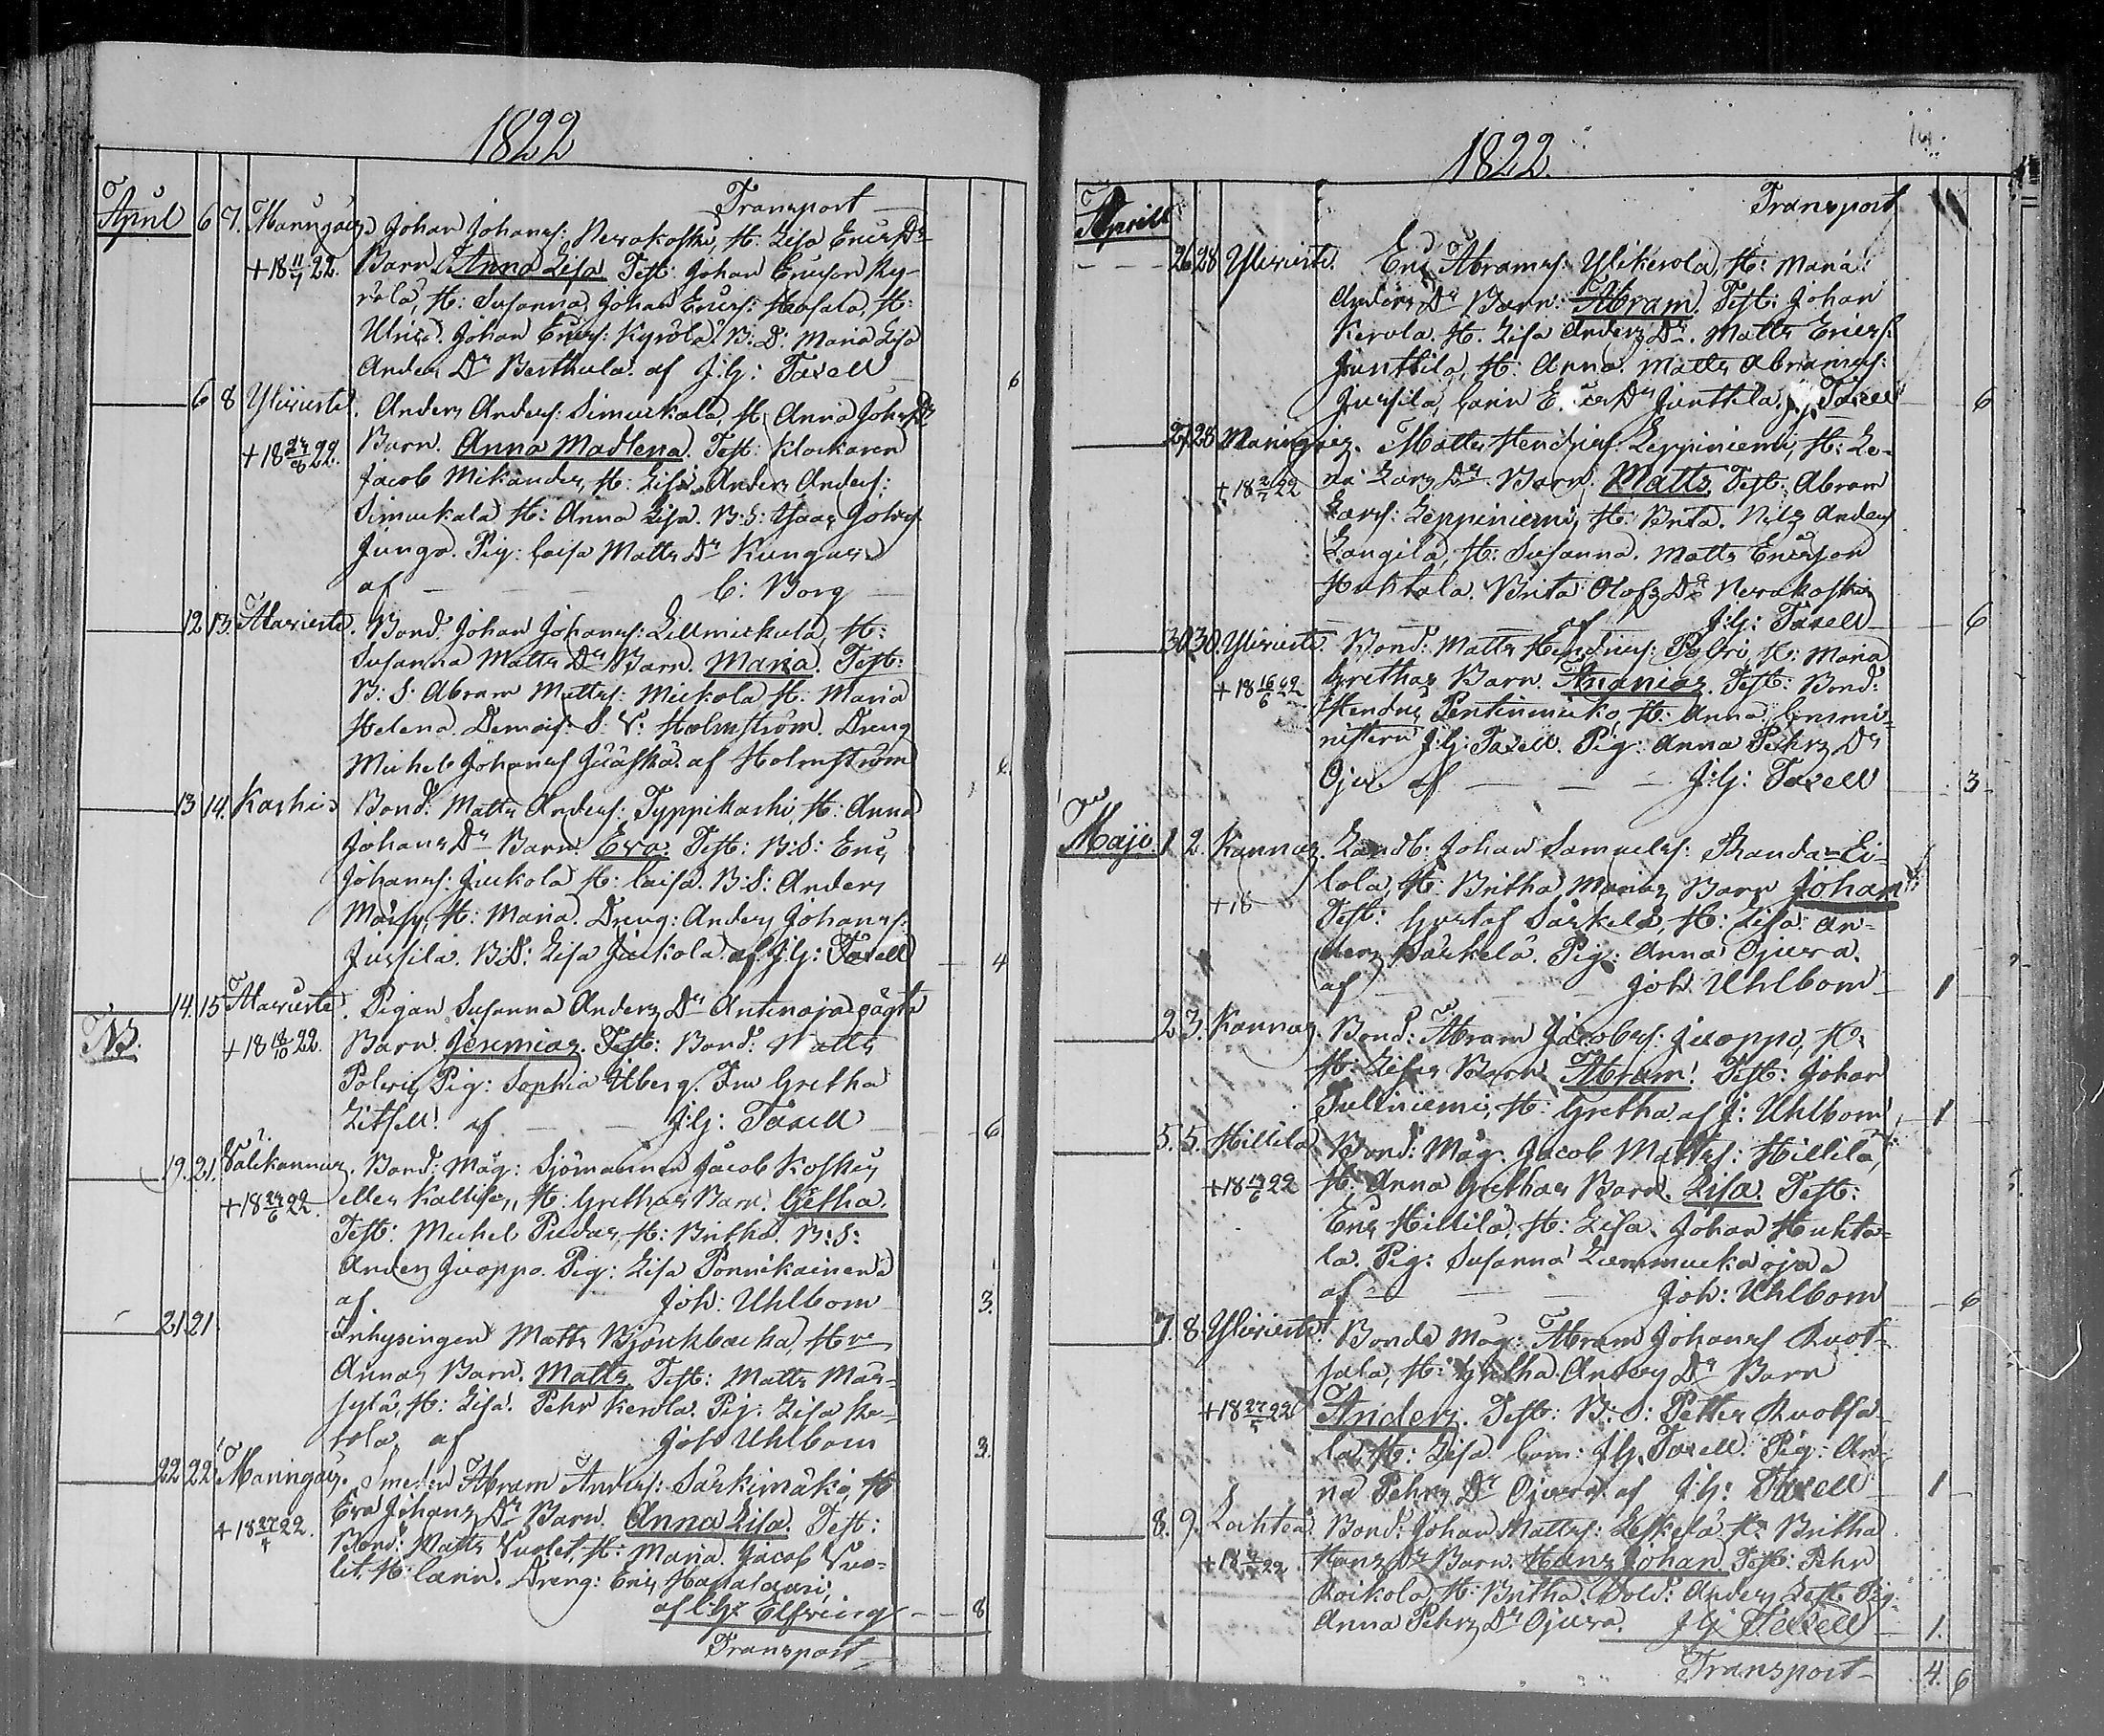 1822
Transport
April 6 7. Maringais Johan Johans: Nerokoski, H: Lisa EricsDr
+18 11/7 22. Barn Anna Lisa. Test: Johan Ericson Ky-
rölä, H: Susanna, Johan Erics: Hosala, H:
Ulrica. Johan Erics: Kyrölä. B: D: Maria Lisa
Anders Dr Berthula. af J:G: Taxell 6
6 8 Ylivieste. Anders Anders: Simuckala, H: Anna Johs Dr
+18 22. Barn. Anna Madlena. Test: Klockaren
Jacob Mikander, H: Lisa. Anders Anders:
Simuckala H: Anna Lisa. B:S: Isaac Johs:
Junga. Pig: Caisa Matts Dr Kungas
af C: Borg
12 13. Alavieste. Bond: Johan Johans: Lillmickula, H:
Susanna Matts Dr Barn. Maria. Test:
B: S: Abram Matts: Mickola H: Maria
Helena. Demois: S: V: Holmström. Dreng
Michel Johans Jääskä. af Holmström 6.
13 14. Kaski Bond: Matts Anders: Typpikaski, H: Anna
Johans Dr Barn. Eva. Test: B:S: Eric
Johans: Juckola H: Caisa. B:S: Anders
H: Maria. Dreng: Anders Johans:
Jussila. B:D: Lisa Juckola. af J:G: Taxell 4
14. 15 Alavieste. Pigan Susanna Anders Dr Antinoja oägta
NB. +18 12/10 22. Barn. Jeremias. Test: Bond: Matts
Polvi, Pig: Sophia Uberg. Fru Gretha
Litsell. af J:G: Taxell 6
19. 21. Välikannus. Bond: Måg: Sjömannen Jacob Koskis
+18 24/6 22. eller Kallises, H: Grethas Barn. Gretha.
Test: Michel Pudas, H: Britha. B:S:
Anders Juoppo. Pig: Lisa Ponnikainen
af. Joh: Uhlbom 3.
21. 21. Inhysingen Matts Björkbacka, H
Annas Barn. Matts. Test: Matts Mär-
sylä, H: Lisa. Pehr Kerola. Pig. Lisa Ke-
rola, af Joh Uhlbom 3.
22 22 Maringais. Smeden Abram Anders: Särkimäki, H
+18 27/4 22. Eva Johans Dr Barn. Anna Lisa. Test:
Bond: Matts Vuolet, H: Maria. Jacob Vuo-
let. H: Carin. Dreng: Eric Hapalaari;
af C:G: Elfving 8
Transport
1822.
Transport
Aprill
26 28 Yliviesté. Eric Abrams: Ylikerola, H: Maria
Anders Dr Barn: Abram. Test: Johan
Kerola. H. Lisa Anders Dr. Matts Erics:
Junttila, H: Anna. Matts Abrams:
Jussila, Carin Erics Dr Junttila. J.G. Taxell 6
27 28 Maringais. Matts Hendrics: Leppiniemi, H: Le-
+18 21/7 22 na Lars Dr. Barn. Matts. Test: Abram
Lars: Leppiniemi, H: Brita. Nils Anders
Langila, H: Susanna. Matts Ericson
Huhtala. Brita Olofs Dr Nerokoski
af J:G: Taxell 6
30 30. Yliviesté Bond: Matts Hendrics: Polvi H: Maria
+18 16/6 22 Grethas Barn. Ananias. Test: Bond:
Hendric Pentinmicko, H: Anna. Commi-
nistern J:G: Taxell. Pig: Anna Pehrs Dr
Oju. af J:G: Taxell 3
Majo. 1 2. Kannus. Landb: Johan Samuels: Randa-Ei-
+18 lola, H: Britha Marias Barn Johan.
Test: Gustaf Särkelä, H: Lisa. An-
ders Särkelä. Pig: Anna Ojura.
af Joh: Uhlbom 1
2 3. Kannus. Bond: Abram Jacobs: Juoppo, H:
H: Lisas Barn. Abram. Test: Johan
Tulliniemi, H: Gretha af J: Uhlbom 1
5. 5. Hillilä Bond: Måg. Jacob Matts: Hillilä,
+18 22 H: Anna Grethas Barn. Lisa. Test:
Eric Hillilä, H: Lisa. Johan Huhta-
la. Pig: Susanna Lammickaoja
af Joh: Uhlbom 6
7. 8. Yliviesté. Bonde Måg: Abram Johans Ruot-
sala, H: Gretha Anders Dr Barn
+18 27/5 22 Anders. Test: B:S: Petter Ruotsa-
la, H: Lisa. Com: J.G. Taxell. Pig: An-
na Pehrs Dr Ojura. af J:G: Taxell 1
8. 9. Lochteå. Bond: Johan Matts: Leskelä H: Britha
+18 22. Hans Dr Barn. Hans Johan. Test: Pehr
Roikola, H: Britha. Sold: Anders Zest. Pig:
Anna Pehrs Dr Ojura. J:G: Taxell 1.
Transport 4. 6